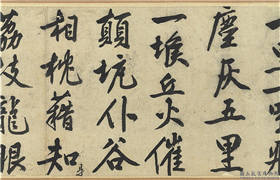 塵灰五里
一堠兵火催
顛坑仆谷
相枕藉知是
荔支龍眼